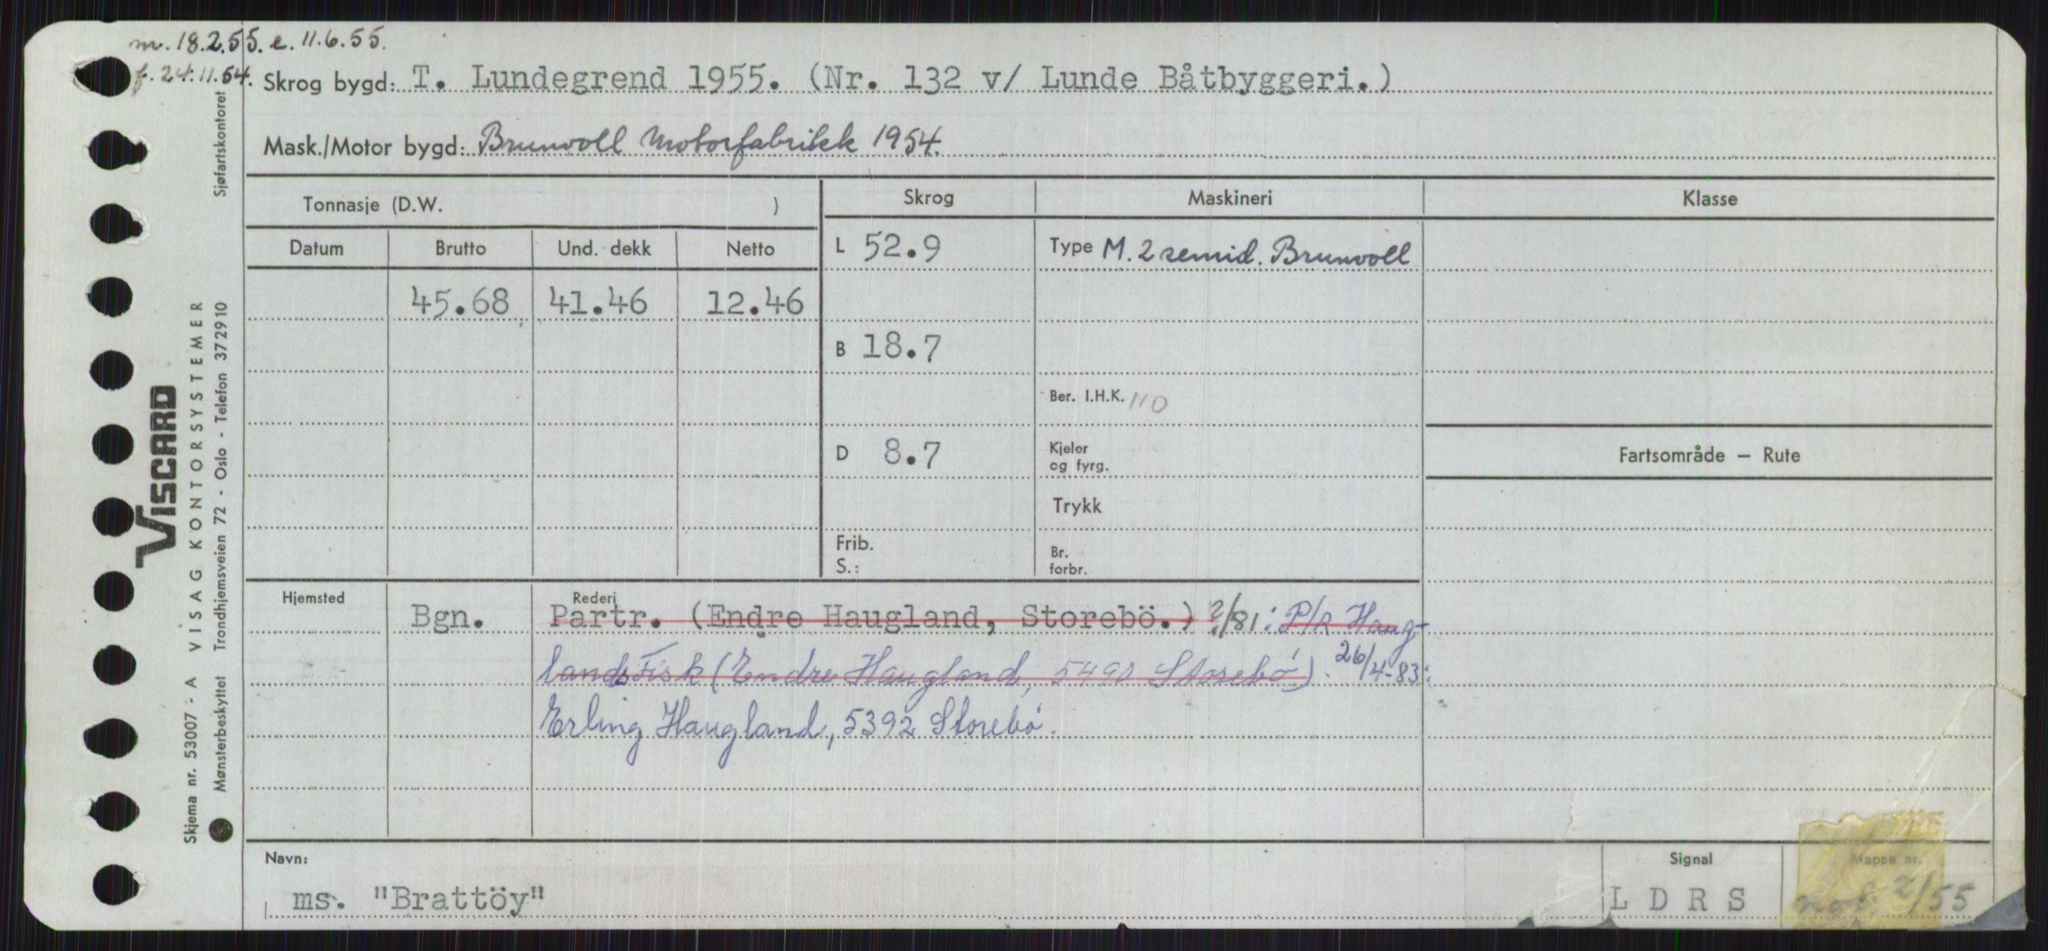 m. 18.2.55. e. 11.6.55.
f. 24.11.54.
Skrog bygd: T. Lundegrend 1955. (Nr. 132 v/ Lunde Båtbyggeri.)
Mask./Motor bygd: Brunvoll Motorfabrikk 1954.
Tonnasje (D.W. )
Skrog
Maskineri
Klasse
Datum Brutto Und. dekk Netto
L 52.9
Type M. 2 semid. Brunvoll
45.68 41.46 12.46
B 18.7
Ber. I.H.K. 110
D 8.7
Kjeler
og fyrg.
Fartsområde — Rute
Trykk
Frib.
S.:
Br.
forbr.
Hjemsted
Rederi
Bgn. Partr. (Endre Haugland, Storebö.) 2/81: P/R Haug-
lands Fisk (Endre Haugland, 5490 Storebö). 26/4-83:
Erling Haugland, 5392 Storebö.
Navn:
ms. "Brattöy"
Signal
LDRS
Mappe nr.
2/55
VISCARD
VISAG KONTORSYSTEMER
Trondhjemsveien 72 - Oslo - Telefon 372910
Skjema nr. 53007 - A
Mønsterbeskyttet
Sjøfartskontoret